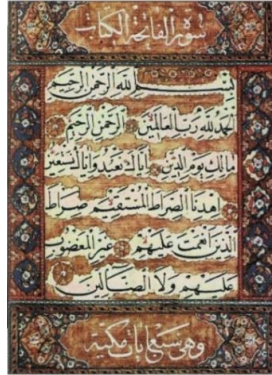 سورة الفاتحة الكتاب
بسم الله الرحمن الرحيم
الحمد لله رب العالمين الرحمن الرحيم
مالك يوم الدين اياك نعبد واياك نستعين
اهدنا الصراط المستقيم صراط
الذين انعمت عليهم غير المغضوب
عليهم ولا الضالين
وهي سبع ايات مكية